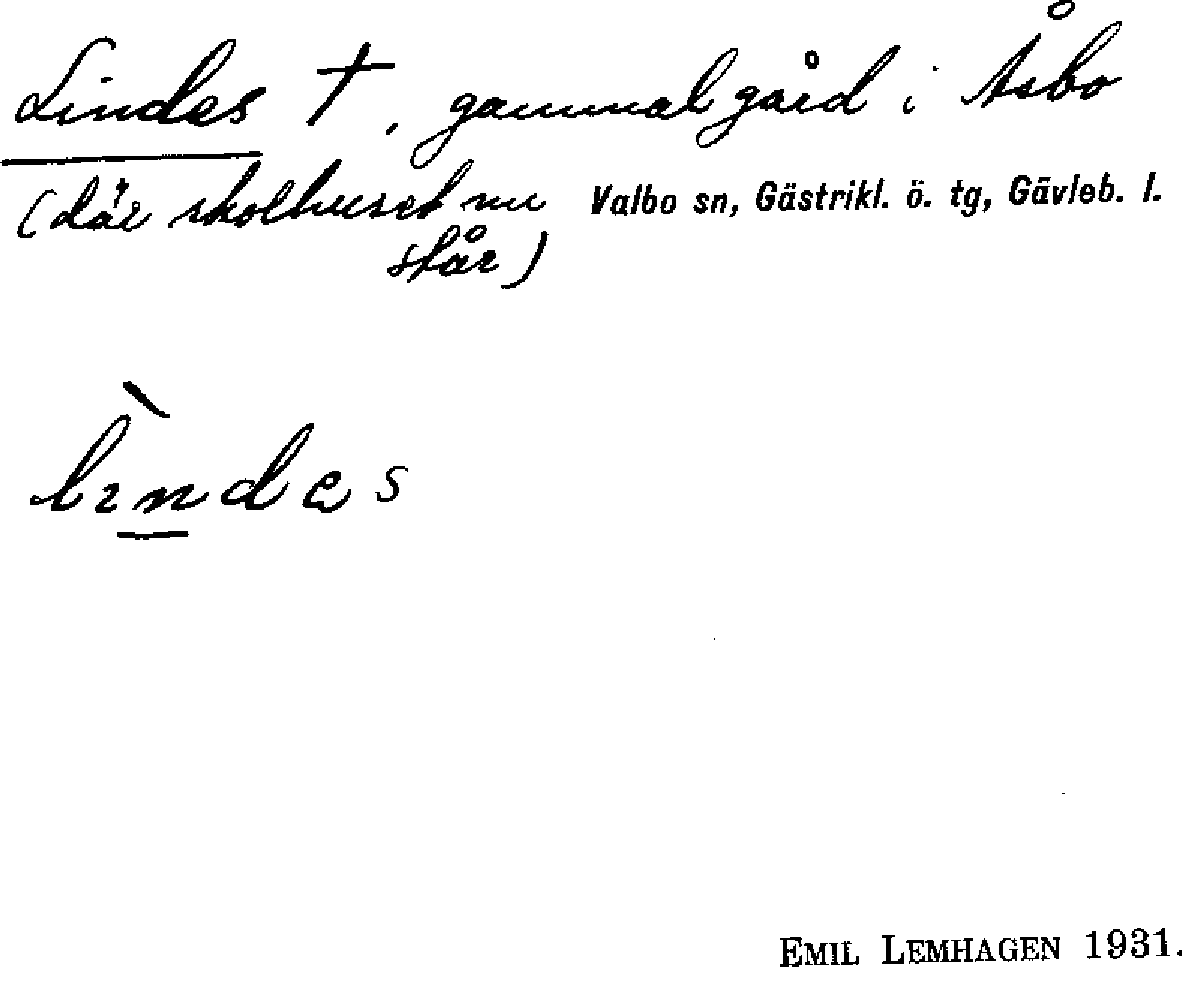 Lindes †, gammal gård i Åsbo
(där skolhuset nu Valbo sn, Gästrikl. ö. tg, Gävleb. l.
står)
lìndes
EMIL LEMHAGEN 1931.